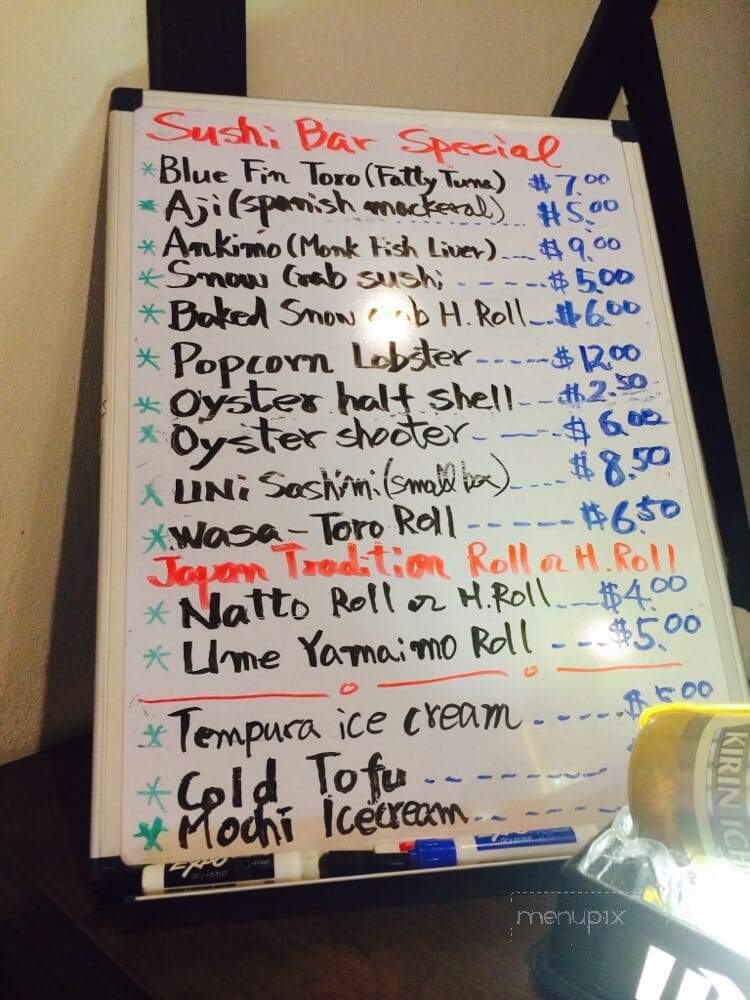 Sushi Bar Special
* Blue Fin Toro (Fatty Tuna) $7.00
* Aji (spanish mackeral) $5.00
* Ankimo (Monk Fish Liver) $9.00
* Snow Crab sushi $5.00
* Baked Snow H. Roll $6.00
* Popcorn Lobster $12.00
* Oyster half shell $2.50
* Oyster shooter $6.00
* UNi Sashimi (small box) $8.50
* Wasa-Toro Roll $6.50
Japan Tradition Roll or H. Roll
* Natto Roll or H. Roll $4.00
* Ume Yamaimo Roll $5.00
* Tempura ice cream $5.00
* Cold Tofu
* Mochi Icecream
EXPO
dry erase
EXPO
dry erase
KIRIN ICH
menupix